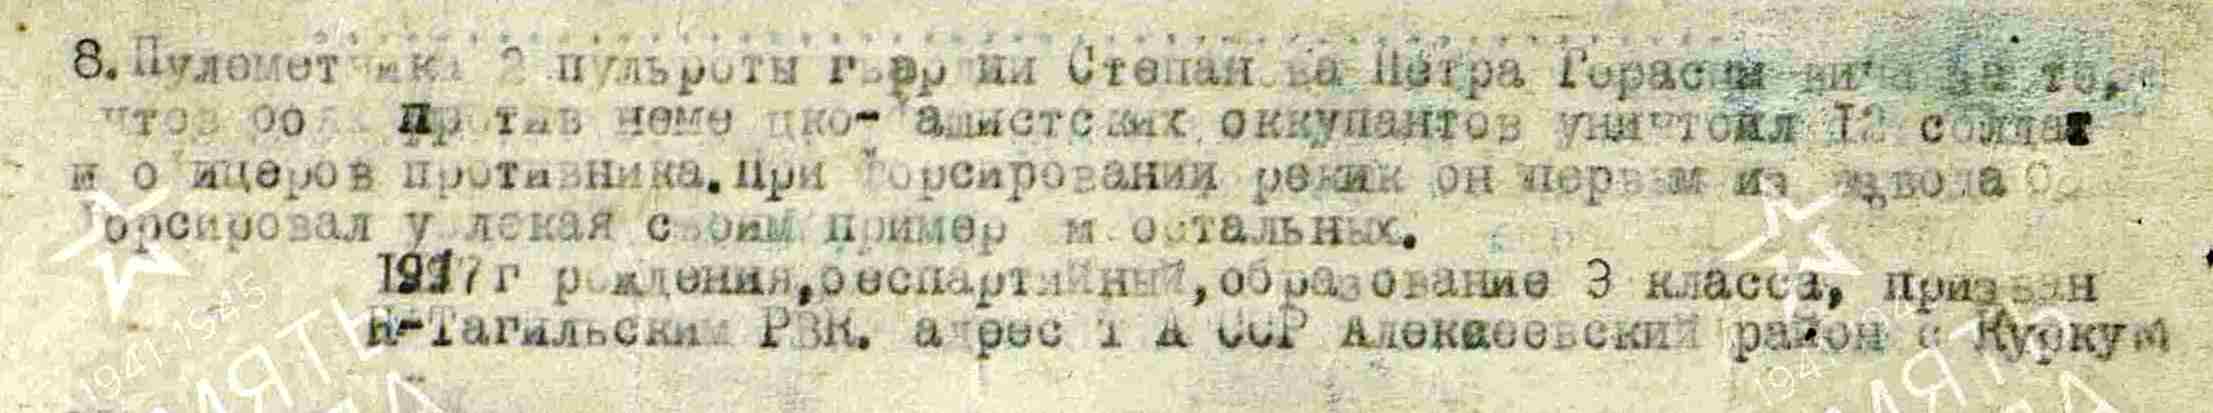 8. Пулеметчика 2 пульроты гвардии Степанова Петра Горасимовича за то,
что в боях против немецко-фашистских оккупантов уничтожил 12 солдат
и офицеров противника. При форсировании реки он первым из взвода
форсировал увлекая своим примером остальных.
1917 г рождения, беспартийный, образование 3 класса, призван
Н-Тагильским РВК. адрес Т А ССР Алексеевский район с Куркум
1941-1945
1941